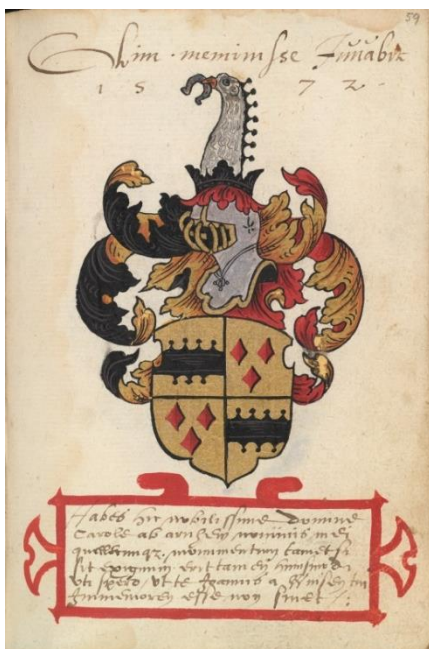 59
Olim meminisse Juuabit
1 5 7 2
Habes hic nobilissime domine
Carole ab nominis mei
monimentum tametsi
sit exiguum erit tamen
vti spero vt te Joannis a
Immemorem esse non sinet